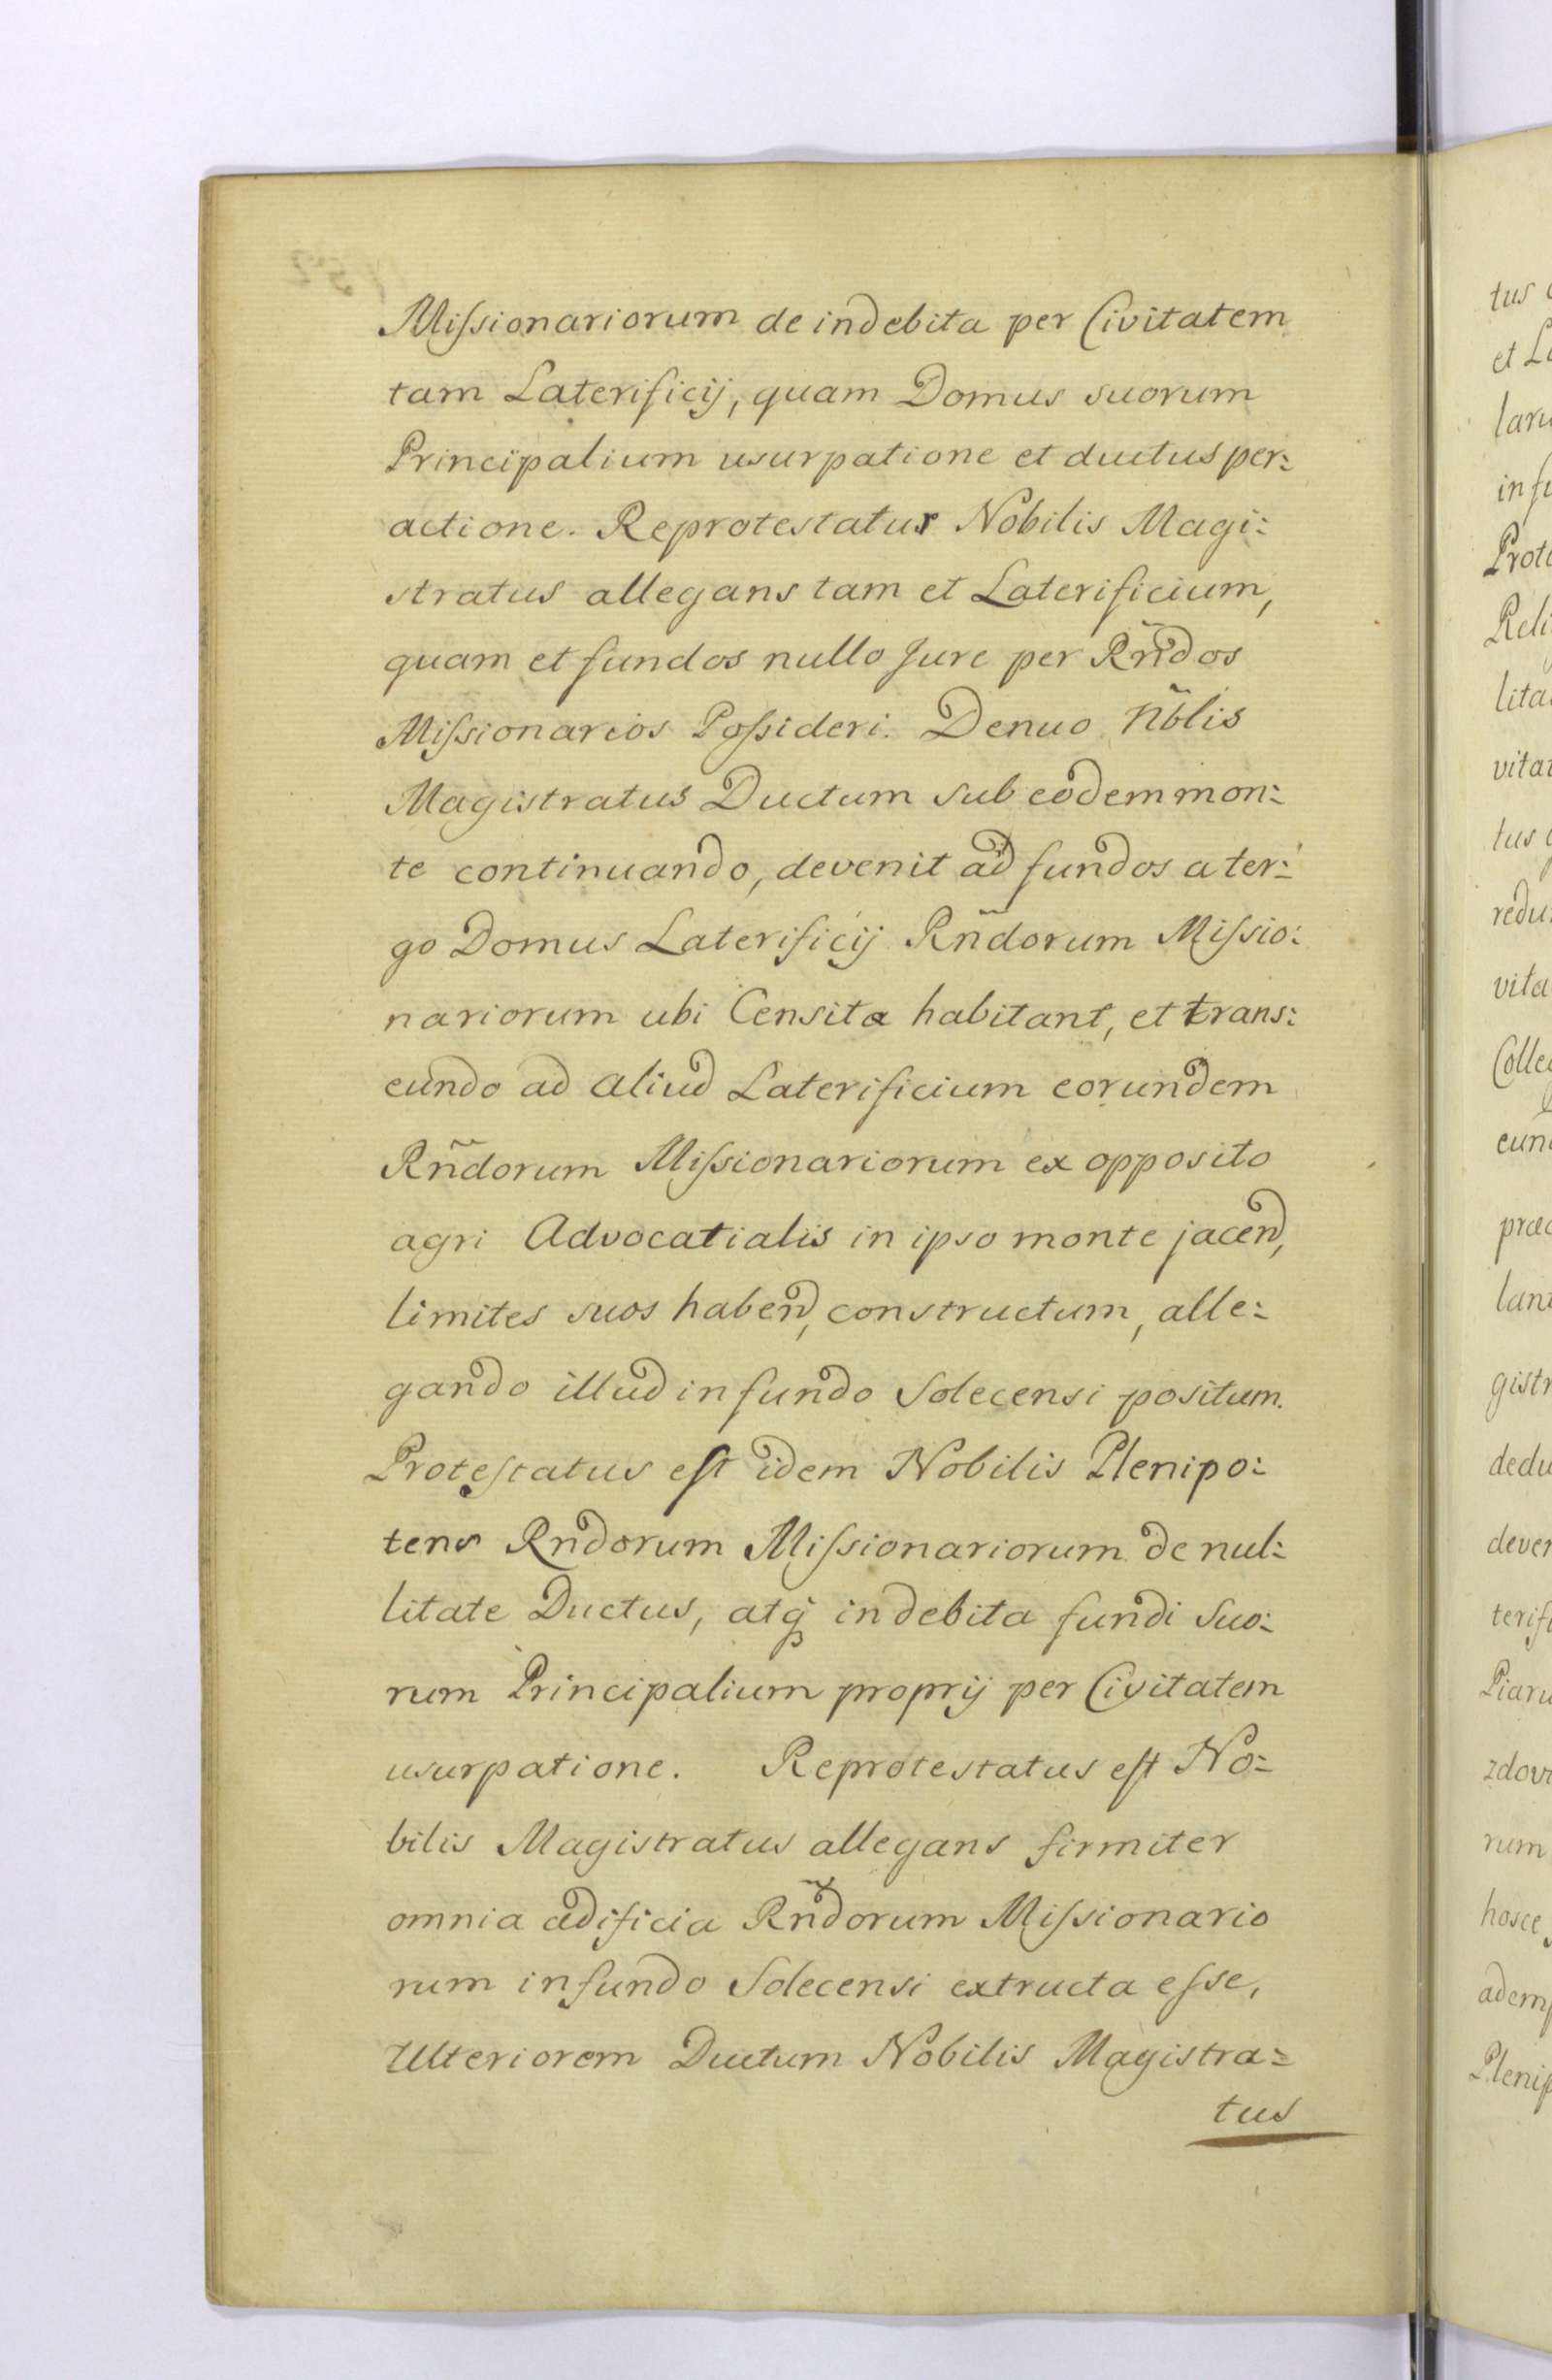 Missionariorum de indebita per Civitatem
tam Laterificij, quam Domus suorum
Principalium usurpatione et ductus per:
actione. Reprotestatur Nobilis Magi:
stratus allegans tam et Laterificium,
quam et fundos nullo Jure per Rñdos
Missionarios Possideri. Denuo Nb̃lis
Magistratus Ductum sub eodem mon:
te continuando, devenit ad fundos a ter:
go Domus Laterificij Rñdorum Missio:
nariorum ubi Censitæ habitant, et trans:
eundo ad aliud Laterificium eorundem
Rñdorum Missionariorum ex opposito
agri Advocatialis in ipso monte jacen̄d,
limites suos haben̄d, constructum, alle:
gando illud in fundo Solecensi positum.
Protestatus est idem Nobilis Plenipo:
tens Rndorum Missionariorum de nul:
litate Ductus, atq̃ indebita fundi Suo:
rum Principalium proprij per Civitatem
usurpatione. Reprotestatus est No:
bilis Magistratus allegans firmiter
omnia ædificia Rñdorum Missionario
rum in fundo Solecensi extructa esse,
Ulteriorem Ductum Nobilis Magistra:
tus
tus
et
in
Prot
Reli
lita
vita
tus
redu
vita
Colle
eun
præ
gistr
dedu
deve
terif
Piaru
zdow
rum
hosce
adem
Plenip